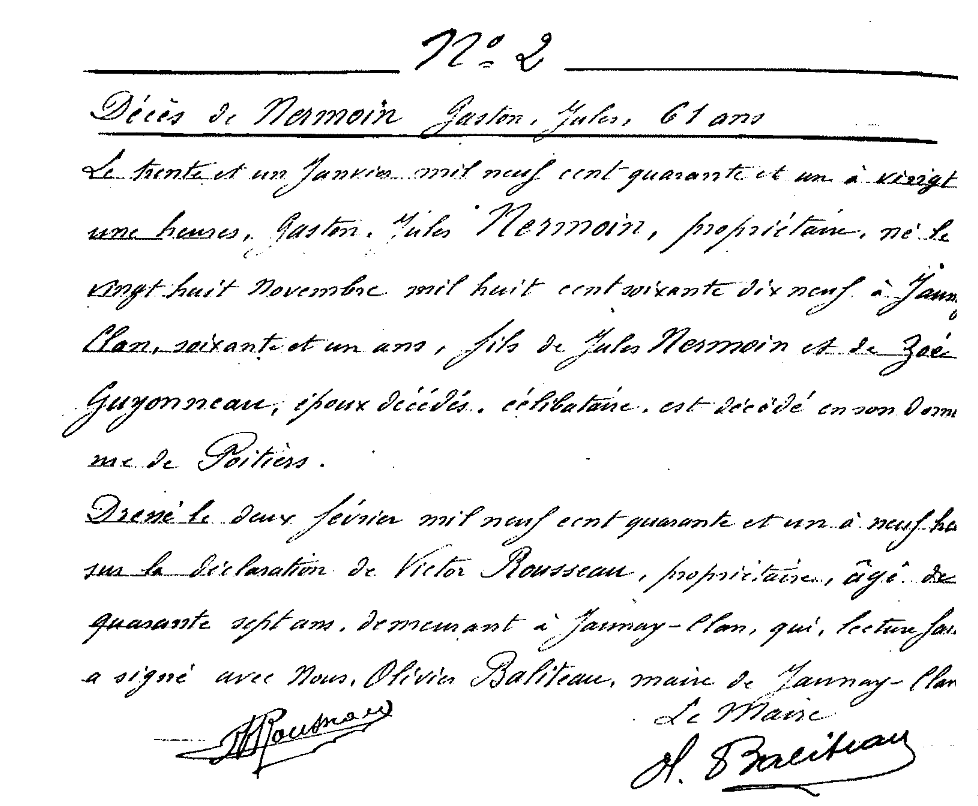 Nº 2
Décès de Nermoin Gaston, Jules, 61 ans
Le trente et un Janvier mil neuf cent quarante et un à vingt
une heures, Gaston, Jules Nermoin, propriétaire, né le
vingt huit Novembre mil huit cent soixante dix neuf à Jaun
Clan, soixante et un ans, fils de Jules Nermoin et de Zoé
Guyonneau, époux décédés, célibataire, est décédé en son dom
me de Poitiers.
Dressé le deux février mil neuf cent quarante et un à neuf he
sur la déclaration de Victor Rousseau, propriétaire, âgé de
quarante sept ans, demeurant à Jaunay-Clan, qui, lecture fai
a signé avec Nous, Olivier Baliteau, maire de Jaunay-Clan
Le Maire
Rousseau
O. Baliteau